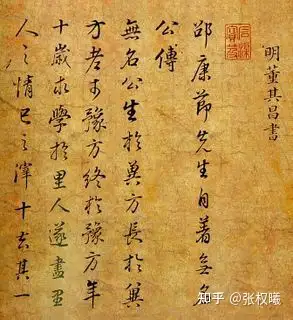 明董其昌書
邵康節先生自著無名
公傳
無名公生於冀方長於冀
方老于豫方終於豫方年
十歲求學於里人遂盡里
人之情己之滓十去其一
知乎 @张权曦